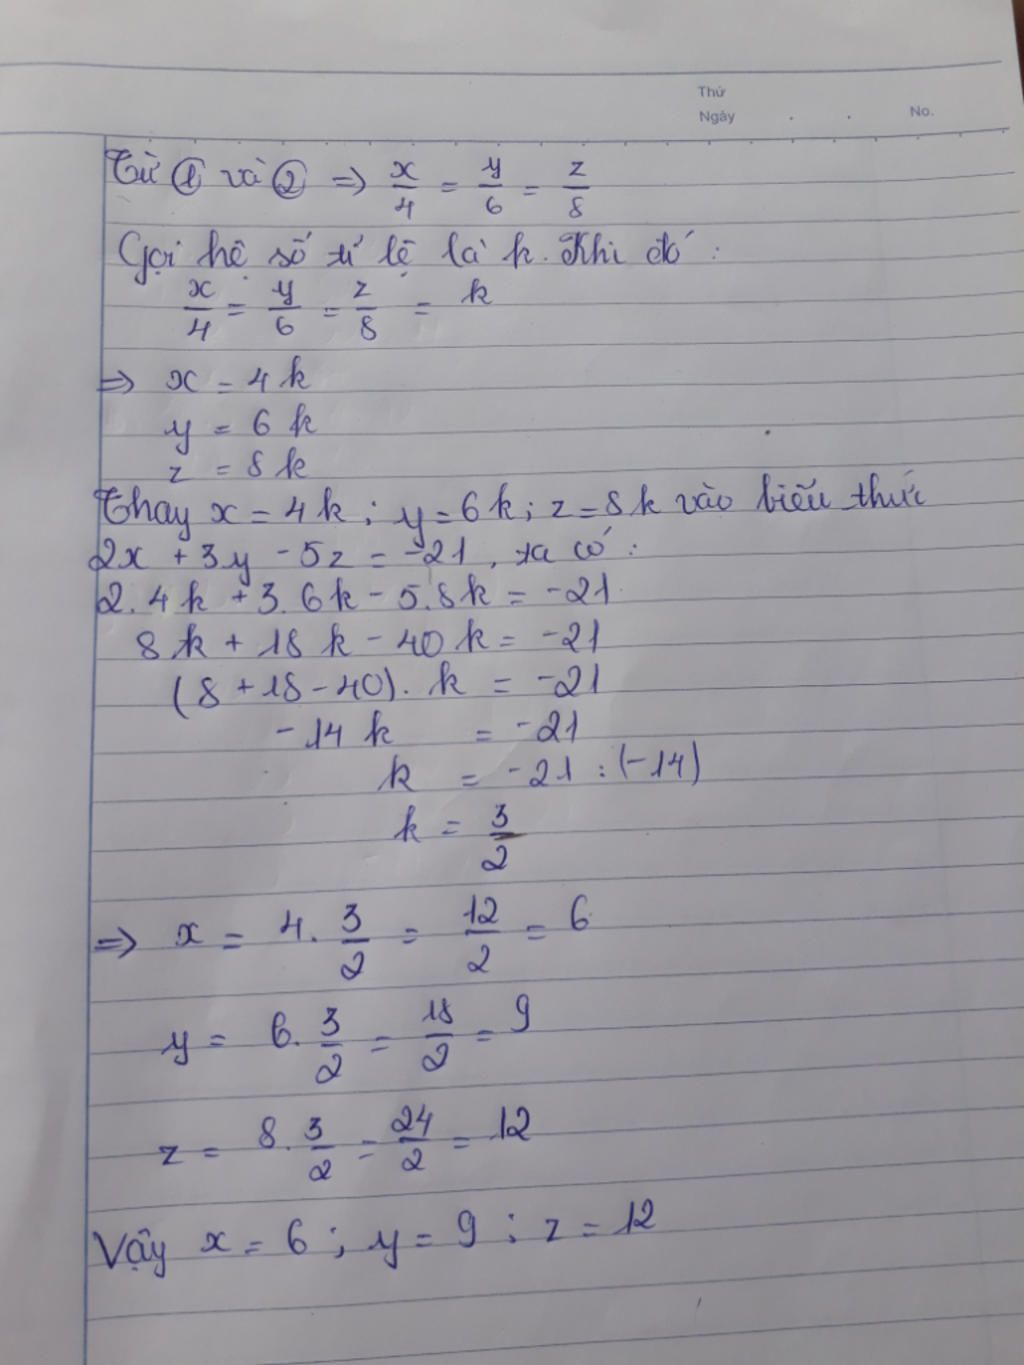 Thứ
Ngày . . No.
Từ ① và ② => x/4 = y/6 = z/8
Gọi hệ số tỉ lệ là k. Khi đó :
x/4 = y/6 = z/8 = k
=> x = 4k
y = 6k
z = 8k
Thay x = 4k ; y = 6k ; z = 8k vào biểu thức
2x + 3y - 5z = -21, ta có :
2.4k + 3.6k - 5.8k = -21
8k + 18k - 40k = -21
(8 + 18 - 40). k = -21
-14k = -21
k = -21 : (-14)
k = 3/2
=> x = 4. 3/2 = 12/2 = 6
y = 6. 3/2 = 18/2 = 9
z = 8. 3/2 = 24/2 = 12
Vậy x = 6 ; y = 9 ; z = 12